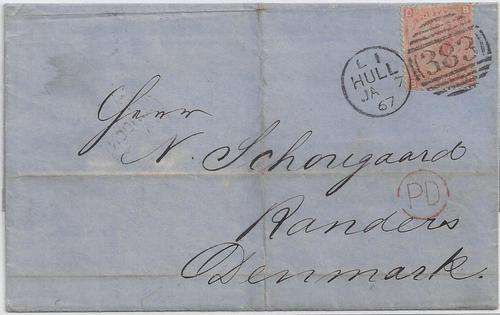 L I
HULL
JA 7
67
383
Herrn
N. Schougaard
PD
Randers
Denmark.